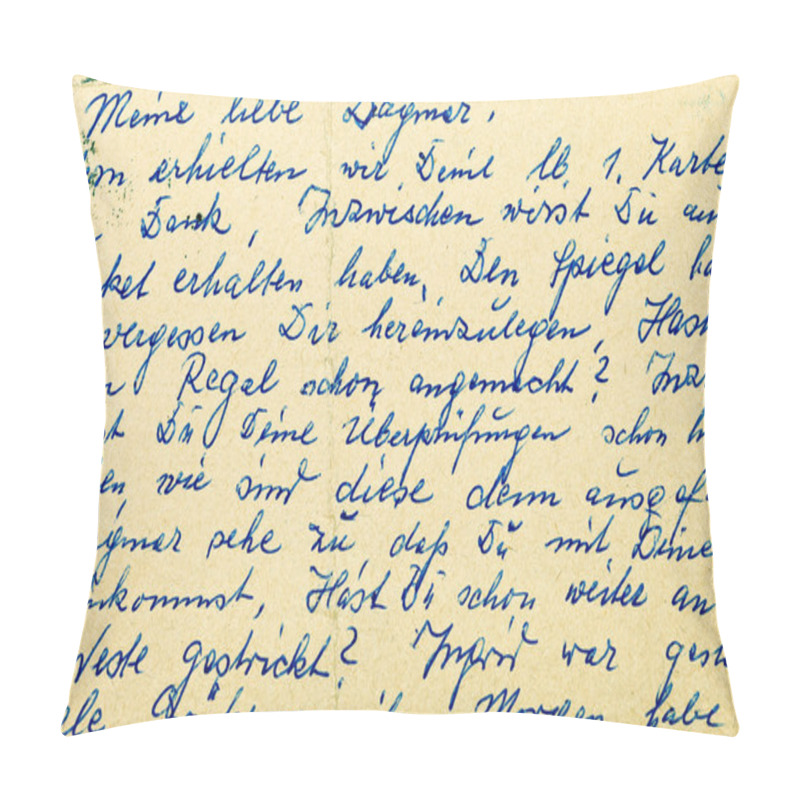 Meine liebe Dagmar,
erhielten wir Deine lb. 1. Karte
Dank, Inzwischen wirst Du
ket erhalten haben, Den Spiegel
vergessen Dir hereinzulegen, Hast
Regal schon angemacht?
Du Deine Überprüfungen schon
en, wie sind diese denn ausgef
gmar sehe zu, daß Du mit Deine
kommst, Hast Du schon weiter an
Weste gestrickt? Ingrid war gest
Morgen habe